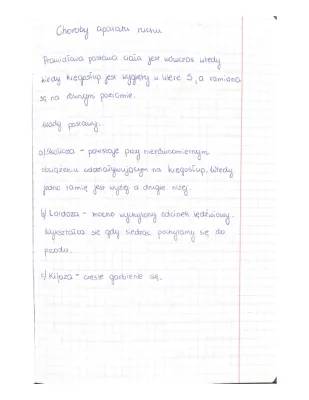 Choroby aparatu ruchu
Prawidłowa postawa ciała jest wówczas wtedy
kiedy kręgosłup jest wygięty w literę S, a ramiona
są na równym poziomie.
Wady postawy.
a) Skolioza - powstaje przy nierównomiernym
obciążeniu oddziaływującym na kręgosłup, wtedy
jedno ramię jest wyżej a drugie niżej.
b) Lordoza - mocno wychylony odcinek lędźwiowy.
Wykształca się gdy siedząc pochylamy się do
przodu.
c) Kifoza - częste garbienie się.